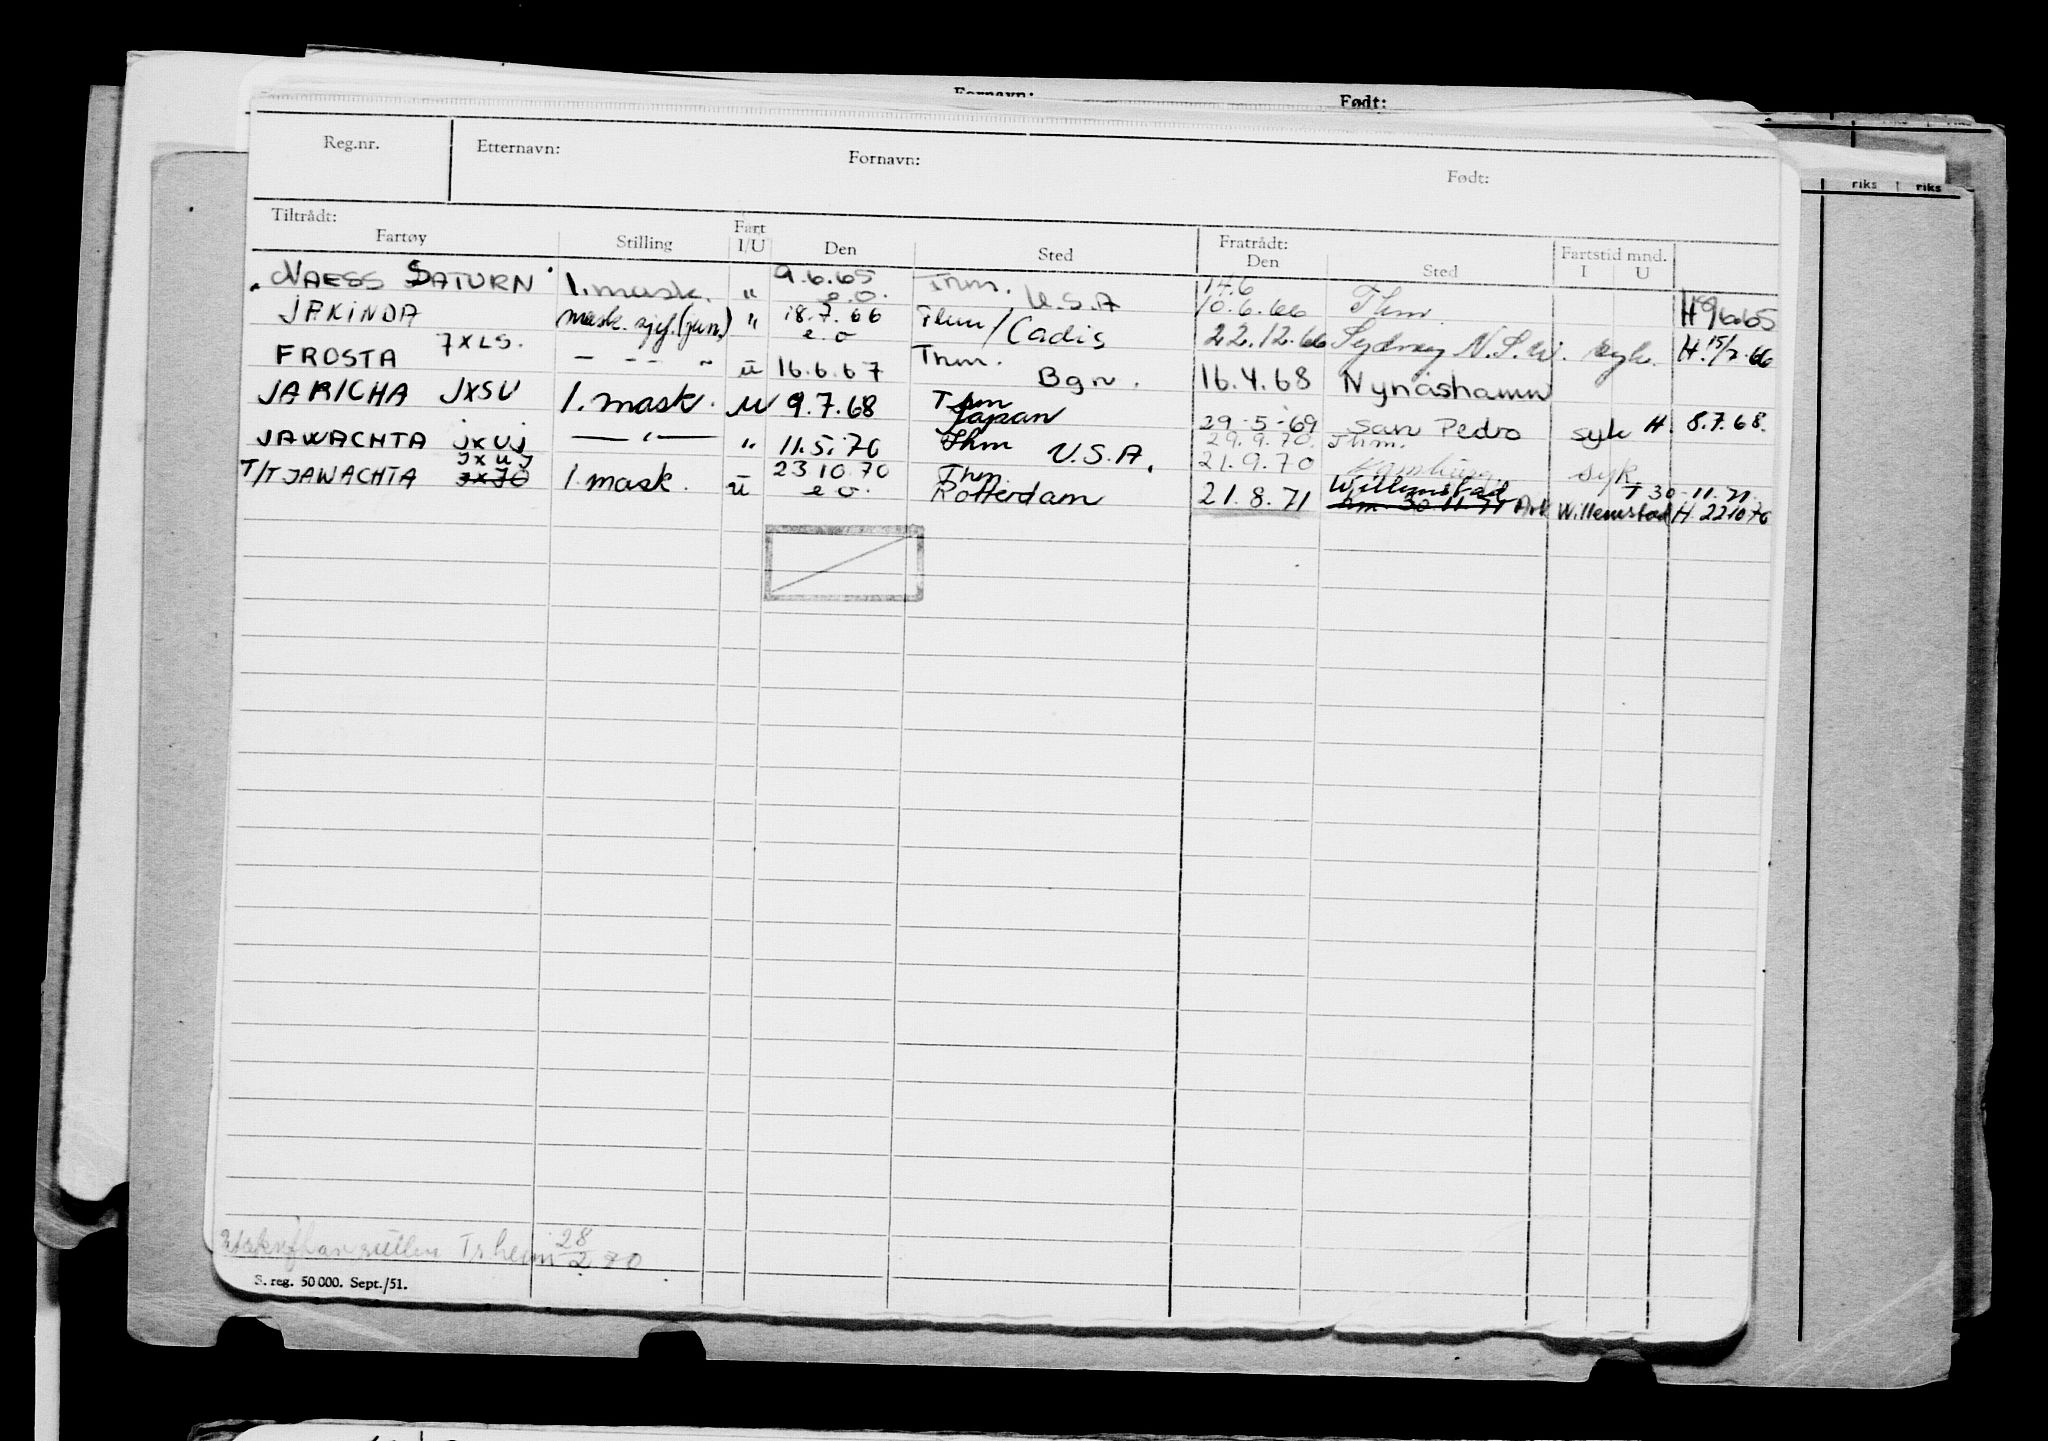 Fornavn: Født:
Reg.nr. Etternavn: Fornavn: Født:
Tiltrådt: Fartøy Stilling Fart I/U Den Sted Fratrådt: Den Sted Fartstid mnd. I U
riks riks
"NAESS SATURN" 1. mask. " 9.6.65 e.o. Thm. U.S.A 14.6 10.6.66 Thm. H 9.6.65
JAKINDA mask. sjef. (jun.) " 18.7.66 e.o Thm / Cadis 22.12.66 Sydney N.S.W. syk. H. 15/7-66
FROSTA JXLS. — - - " ū 16.6.67 Thm. Bgn. 16.4.68 Nynäshamn
JARICHA JXSU 1. mask. U 9.7.68 Thm Japan 29-5-69 San Pedro syk H 8.7.68.
JAWACHTA JXUJ — " — " 11.5.70 Thm U.S.A. 29.9.70. Thm. 21.9.70 Hamburg syk
T/T JAWACHTA JXUJ JXJO 1. mask. ū 23 10.70 e o. Thm Rotterdam 21.8.71 Willemstad Thm. 30 11 71 Avk Willemstad T 30-11.71 H 22 10 70
Trheim 28/2 70
S. reg. 50 000. Sept./51.